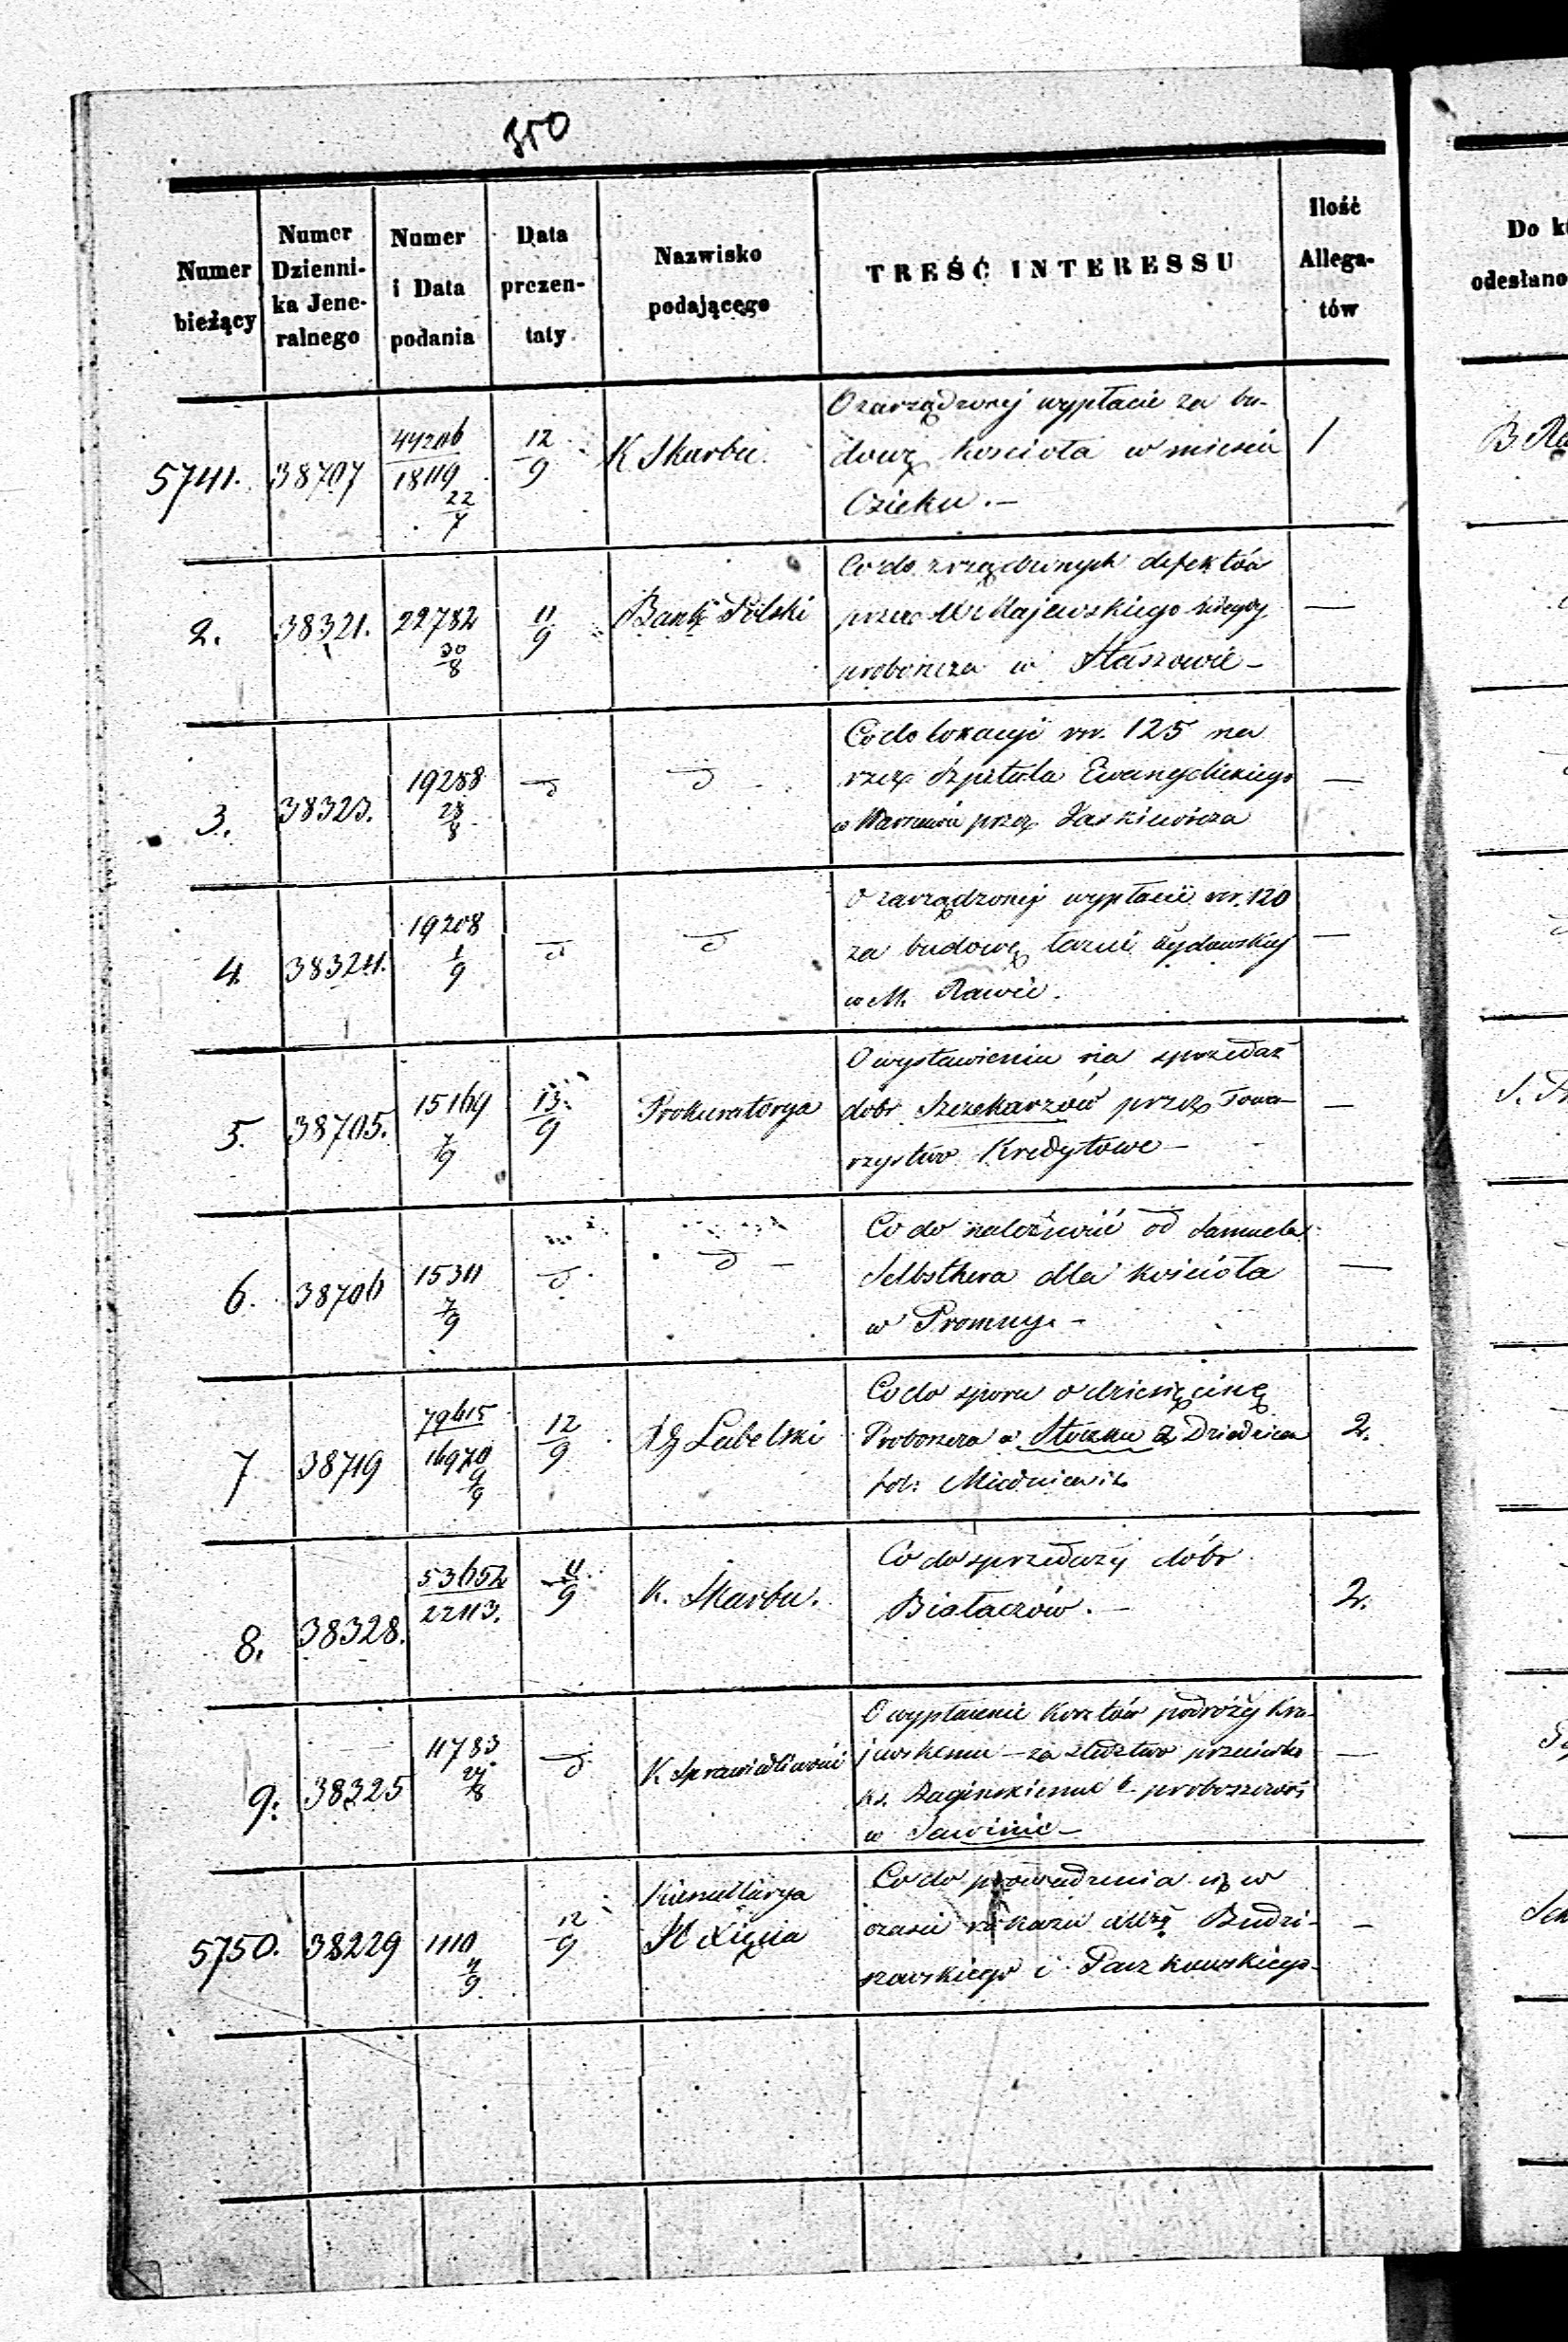 350
Numer bieżący
Numer Dzienni-
ka Jene-
ralnego
Numer i Data podania
Data prezen-
taty
Nazwisko podającego
TREŚĆ INTERESSU
Ilość Allega-
tów
Do k
odesłano
5741. 38707 44206 18119 22/7 12/9 K Skarbu. 1
O zarządzonej wypłacie za bu-
dowę kościoła w mieście
Osieku. —
2. 38321. 22782 30/8 11/9 Bank Polski —
Co do zrządzonych defektów
przez Majewskiego niegdy
proboszcza w Staszowie —
3. 38323. 19288 28/8 d d —
Co do lokacyi rsr. 125 na
rzecz Szpitala Ewangelickiego
w Warszawie przez Jaskiewicza
4. 38324. 19208 1/9 d d —
O zarządzonej wypłacie rsr. 120
za budowę łaźni żydowskiej
w M. Rawie.
5. 38705. 15169 7/9 13/9 Prokuratorya —
O wystawieniu na sprzedaż
dóbr Szczekarzów przez Towa-
rzystwo Kredytowe —
6. 38706 15311 7/9 d d —
Co do należności od Samuela
Selbsthera dla kościoła
w Promnej. —
7 38719 79615 16970 9/9 12/9 Rz Lubelski 2.
Co do sporu o dziesięcinę
Proboszcza w Stoczku z Dziedzicem
fol: Miednicewik
8. 38328. 53652 22113. 11/9 K. Skarbu. 2.
Co do sprzedaży dóbr
Białaczów. —
9. 38325 11783 27/8 d K. Sprawiedliwości —
O wypłacenie kosztów podróży Kra-
jewskemu — za śledztwo przeciwko
ks. Zagińskiemu b. proboszczowi
w Sawinie —
5750. 38229 1110 11/9 12/9 Kancellarya
JO Xięcia —
Co do prowadzenia się w
czasie Budzi-
szewskiego i Paszkowskiego.